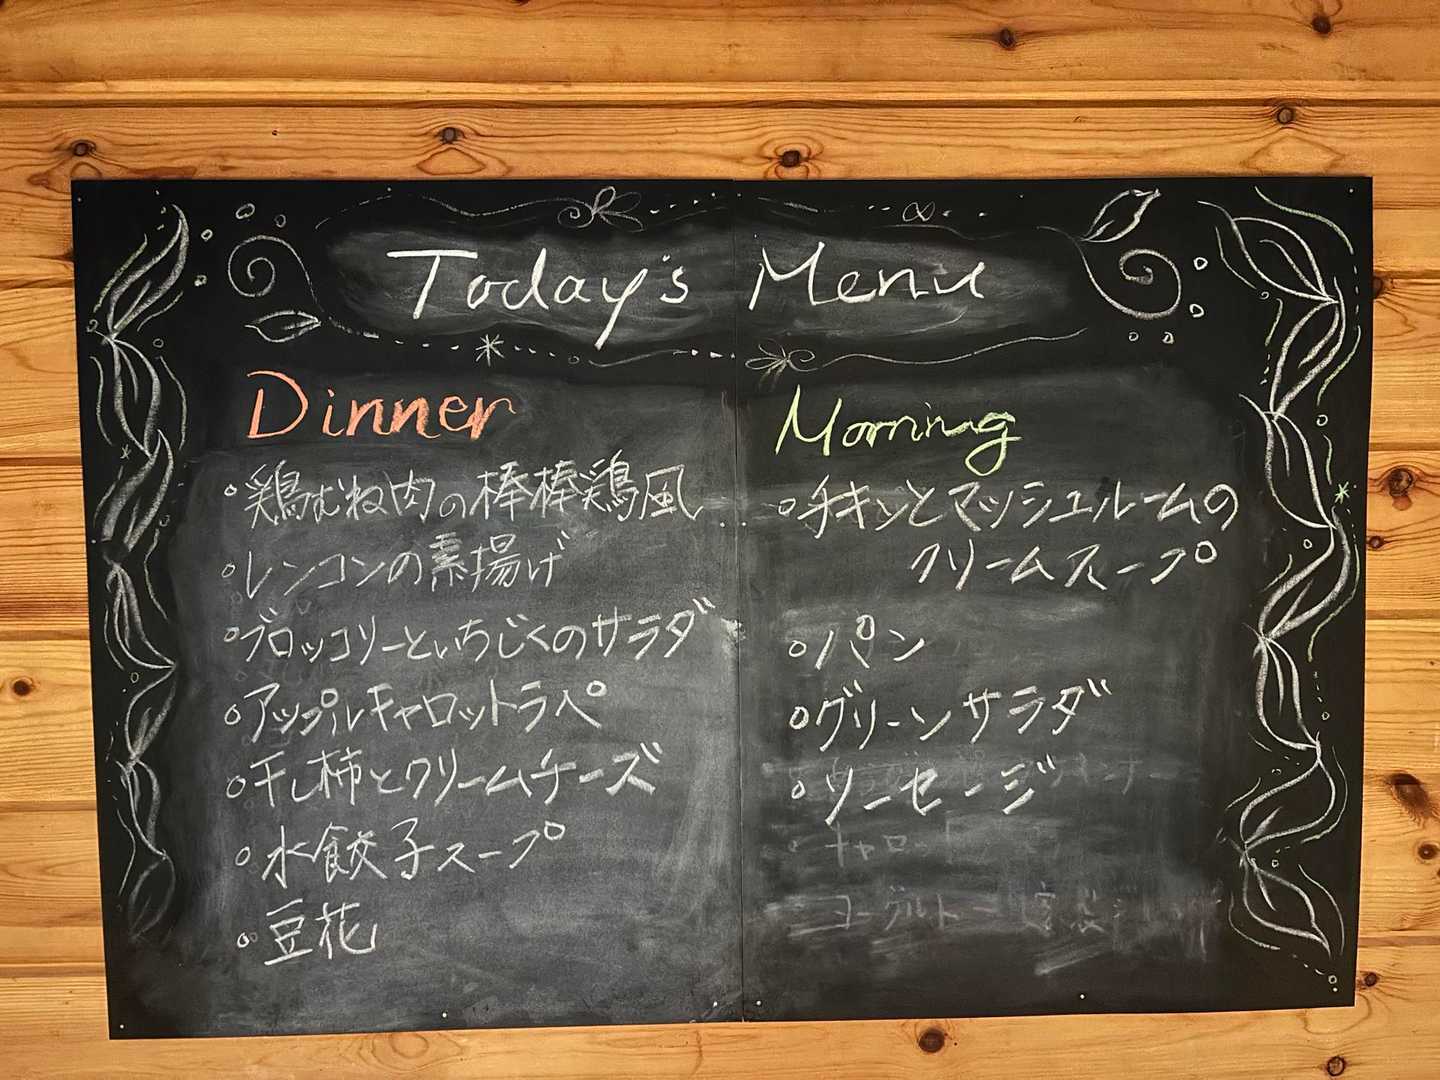 Today's Menu
Dinner
○鶏むね肉の棒棒鶏風
○レンコンの素揚げ
○ブロッコリーといちじくのサラダ
○アップルキャロットラペ
○干し柿とクリームチーズ
○水餃子スープ
○豆花
Morning
○チキンとマッシュルームの
クリームスープ
○パン
○グリーンサラダ
○ソーセージ
キャロット
ヨーグルト